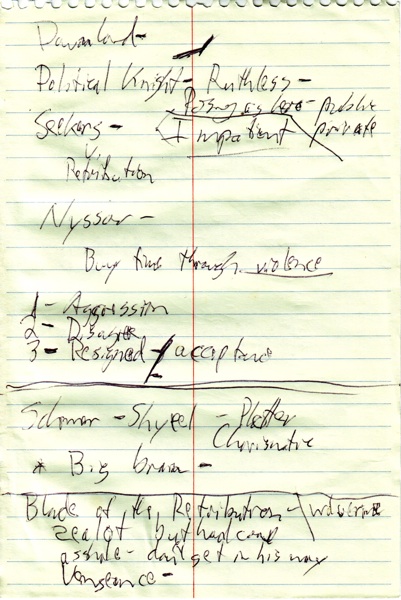 Political Knight - Ruthless -
Posing as hero - public
Seekers - Impatient private
Retribution
Nyssor -
Buy time through violence
1 - Aggression
2 - Disagree
3 - Resigned - / acceptance
Schemer - - Plotter
Charismatic
* Big brain -
Blade of the Retribution -
zealot but
asshole - don't get in his way
Vengeance -